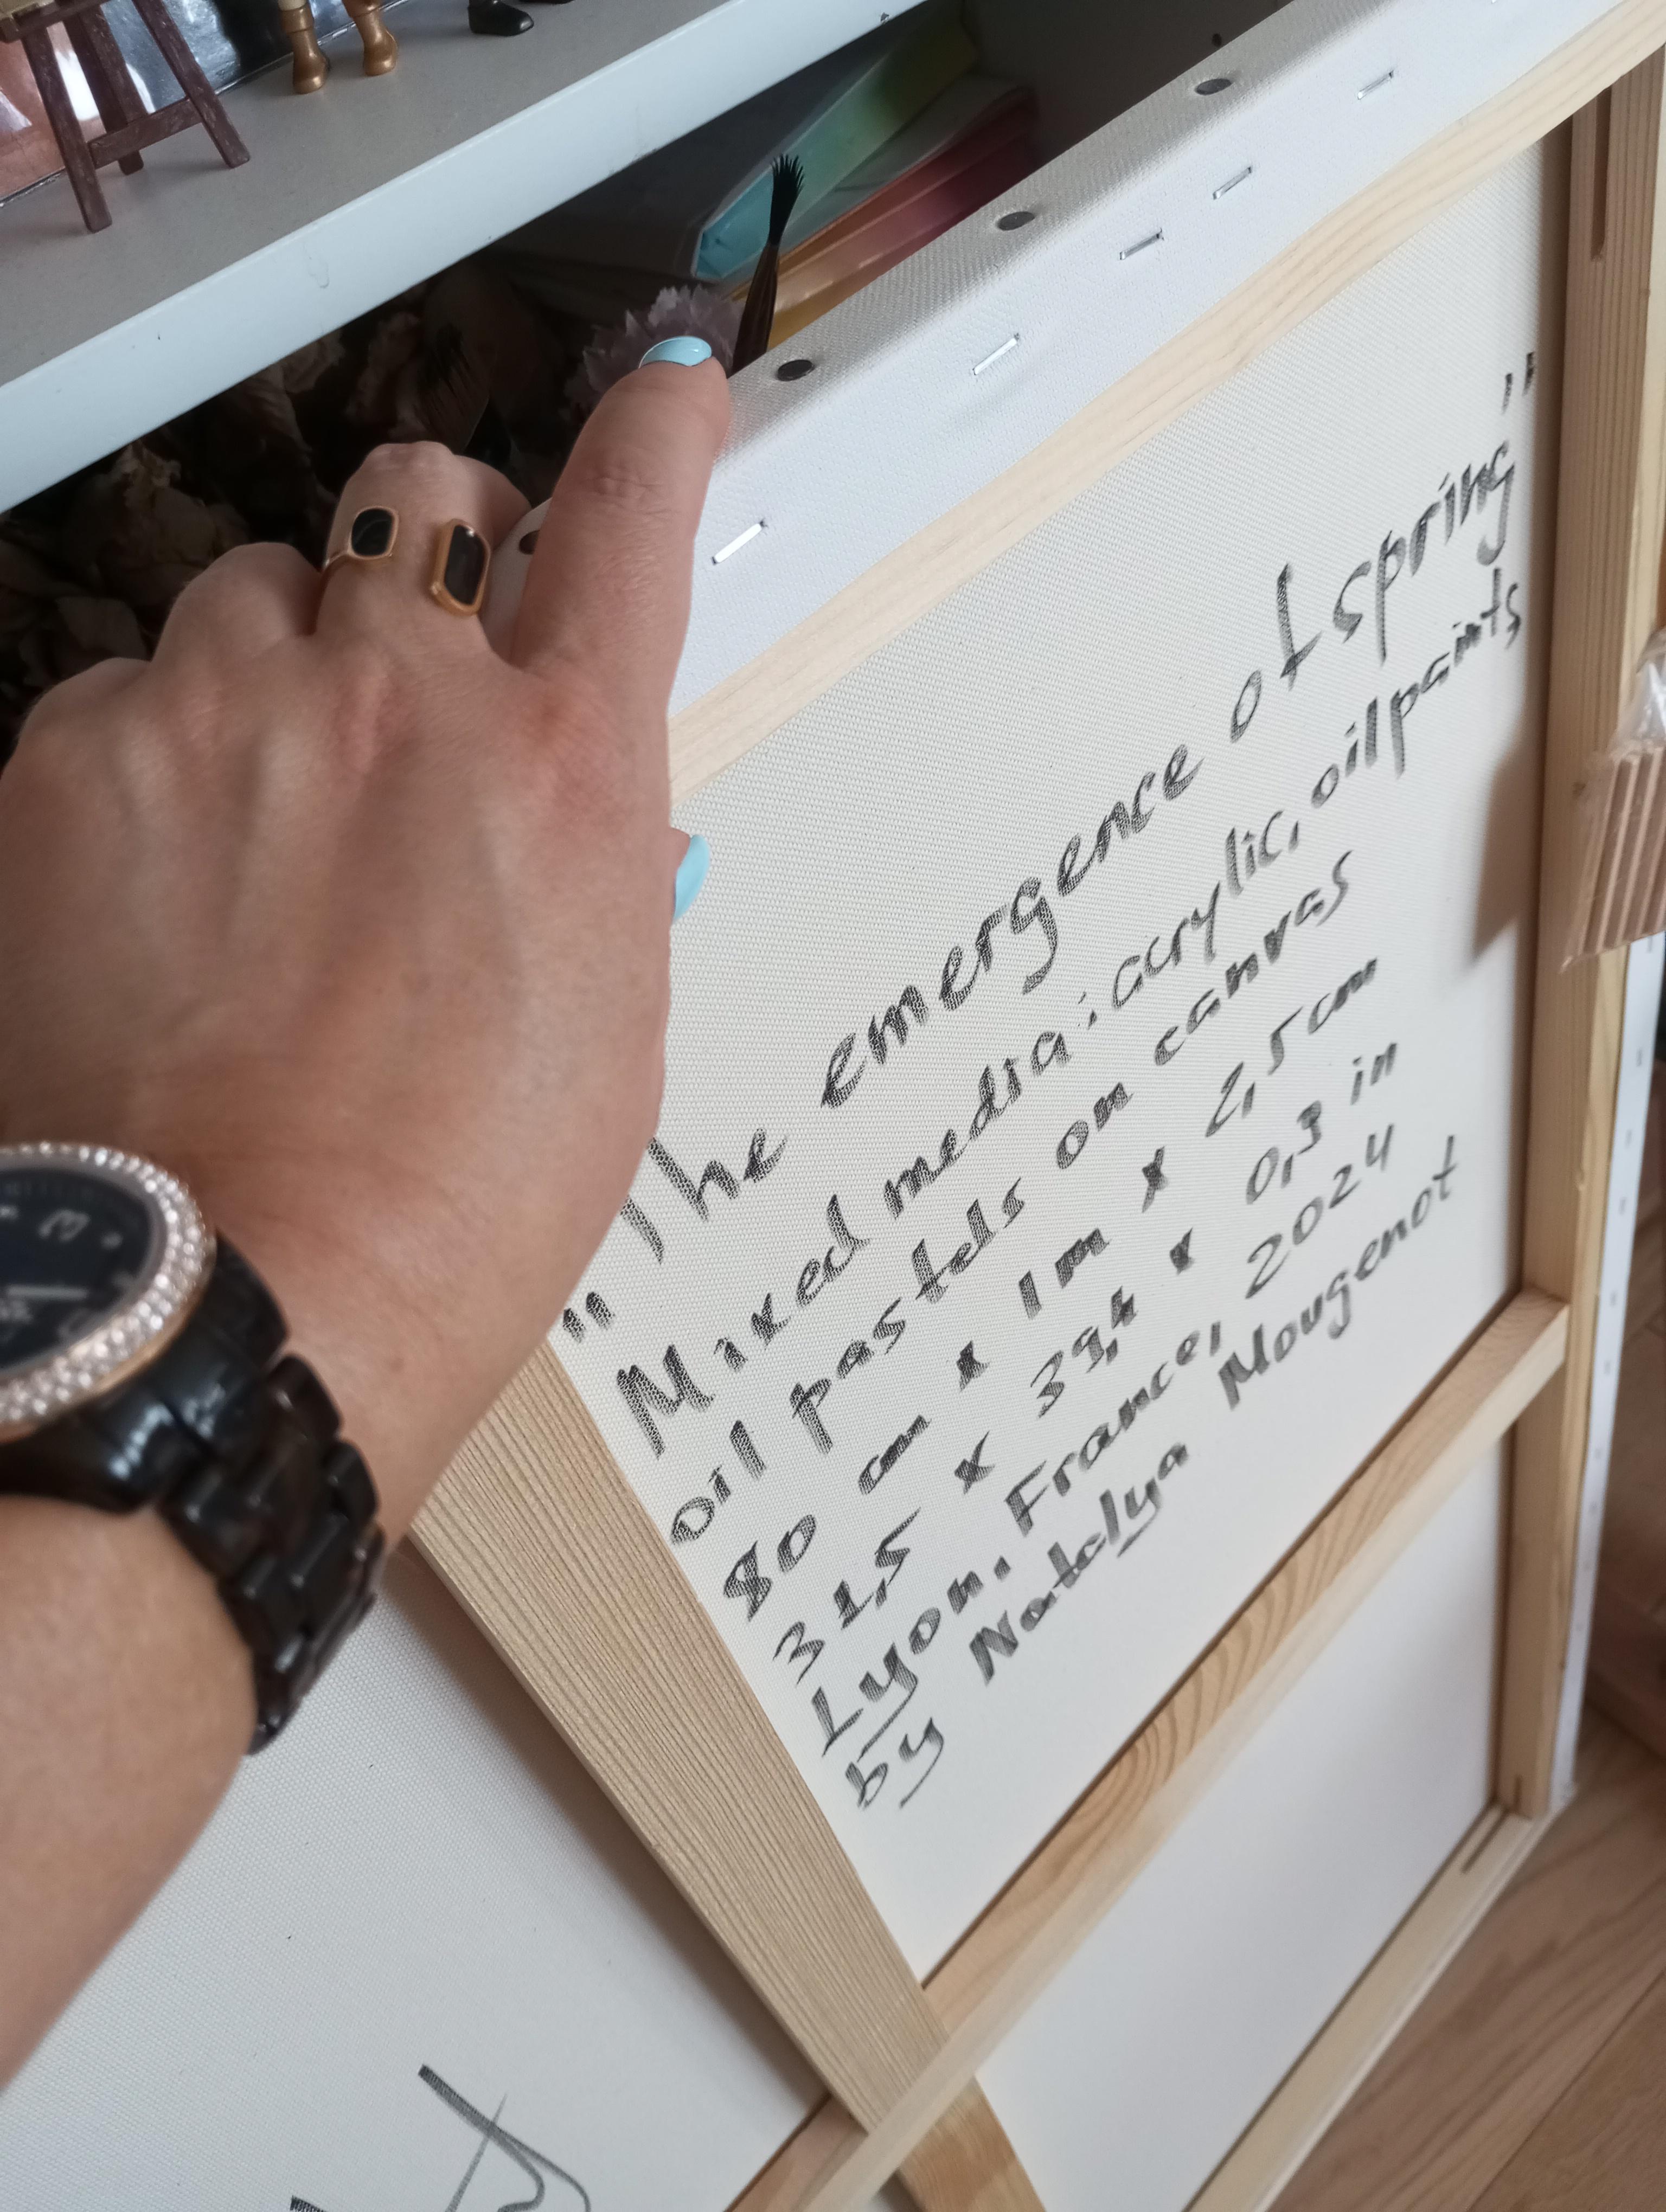 "The emergence of spring"
Mixed media: acrylic, oil paints,
oil pastels on canvas
80 cm x 1m x 2,5cm
31,5 x 39,4 x 0,3 in
Lyon, France, 2024
by Natalya Mougenot